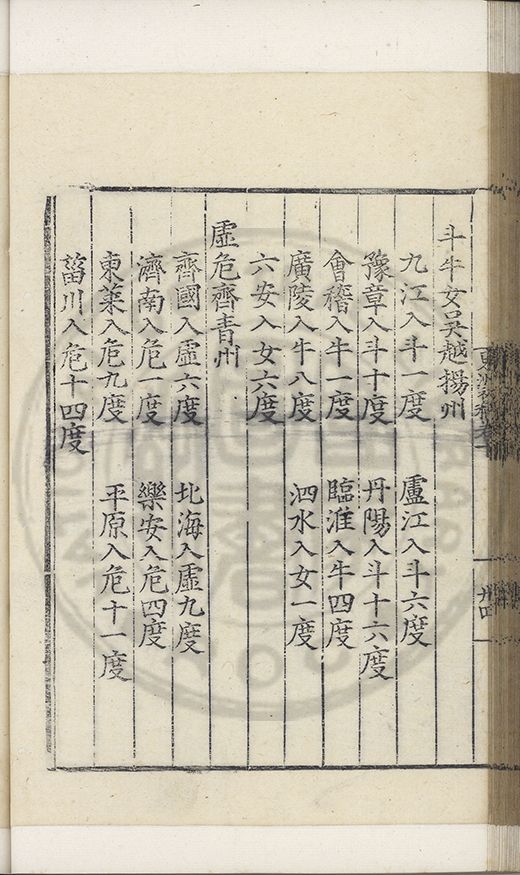 斗牛女吳越揚州
九江入斗一度　廬江入斗六度
豫章入斗十度　丹陽入斗十六度
會稽入牛一度　臨淮入牛四度
廣陵入牛八度　泗水入女一度
六安入女六度
虛危齊青州
齊國入虛六度　北海入虛九度
濟南入危一度　樂安入危四度
東萊入危九度　平原入危十一度
菑川入危十四度